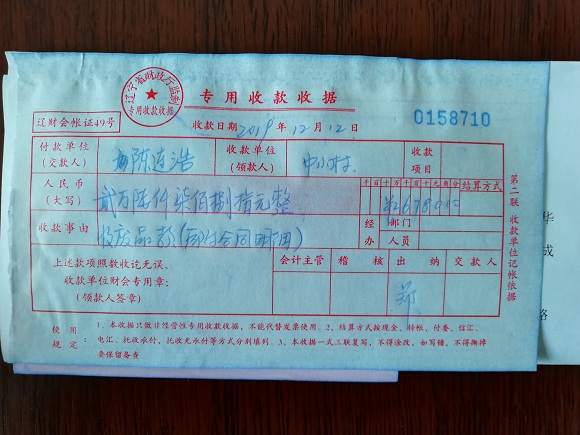 辽宁省财政厅监制
专用收款收据
专用收款收据
0158710
辽财会帐证49号
收款日期 2019 年 12 月 12 日
付款单位 陈连浩 收款单位 收款
(交款人) (领款人) 项目
人民币 贰万陆仟柒佰捌拾元整 千 百 十 万 千 百 十 元 角 分 结算方式
(大写) ¥2678000
收款事由 收废品款 经 部门
办 人员
上述款项照数收讫无误。 会计主管 稽核 出纳 交款人
收款单位财会专用章:
(领款人签章) 郑
使用 1、本收据只做非经营性专用收款收据,不能代替发票使用。2、结算方式按现金、转帐、付委、信汇、
规定: 电汇、托收承付,托收无承付等方式分别填列。3、本收据一式三联复写,不得涂改,如写错,不得撕掉
要保留备查
第二联 收款单位记帐依据
华
成
路